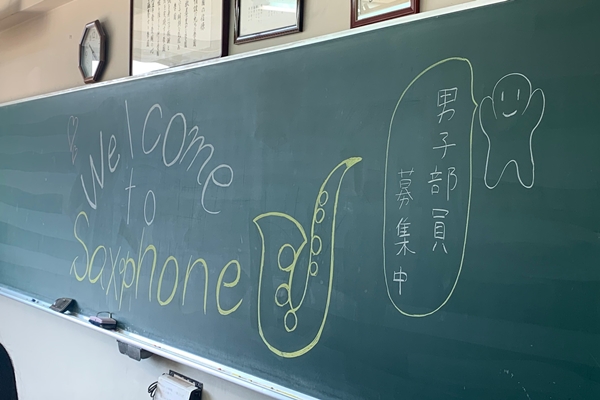 Welcome
to
Saxophone
男子部員
募集中